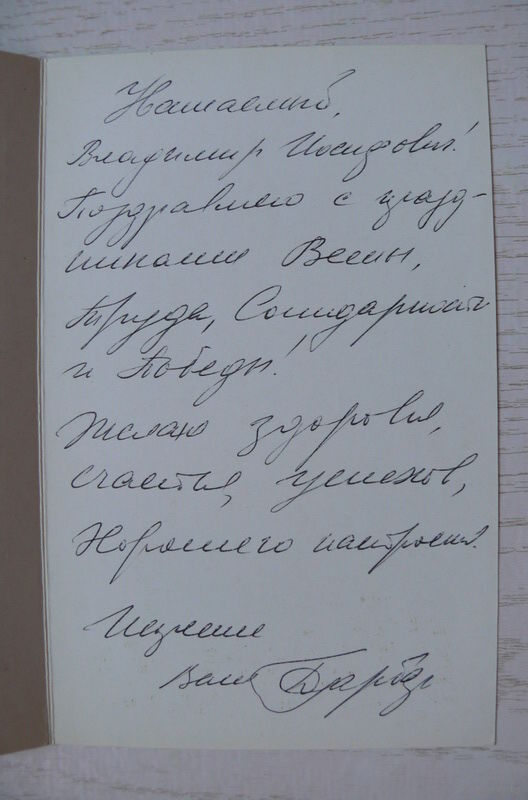 Уважаемый,
Владимир Иосифович!
Поздравляю с празд-
никами Весны,
Труда, Солидарности
и Победы!
Желаю здоровья,
счастья, успехов,
хорошего настроения.
Искренне
Ваш